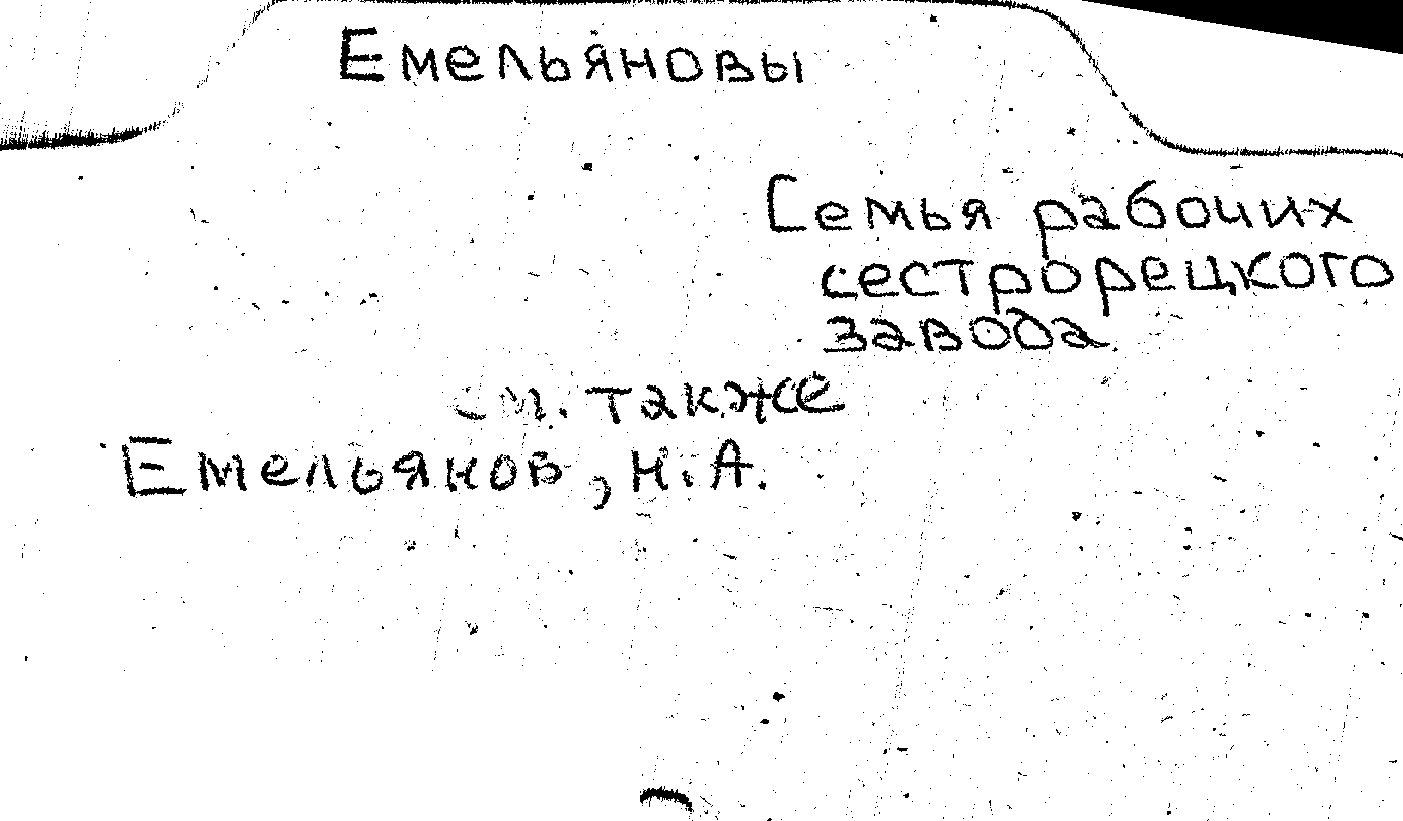 Емельяновы
Семья рабочих
сестрорецкого
завода
см. также
Емельянов, Н.А.